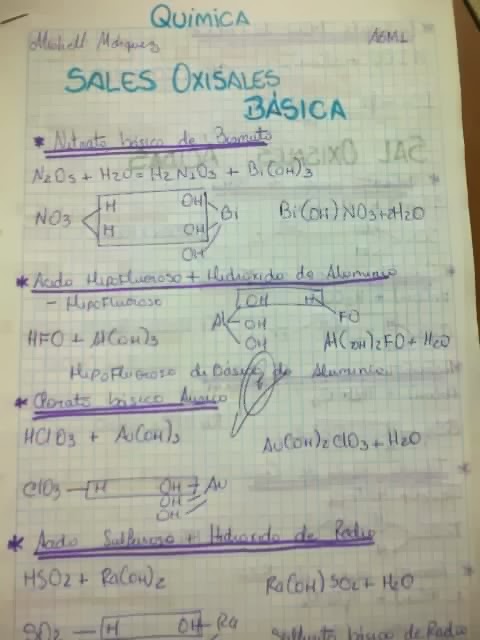 QUÍMICA
Michell Márquez A6ML
SALES OXISALES
BÁSICA
* Nitrato básico de Bismuto
N2O5 + H2O = H2N2O3 + Bi(OH)3
NO3 H OH Bi Bi(OH)NO3+2H2O
H OH
OH
* Acido Hipofluoroso + Hidroxido de Aluminio
- Hipofluoroso OH H
Al OH FO
HFO + Al(OH)3 OH Al(OH)2FO + H2O
Hipofluoroso di Básico de Aluminio
* Clorato básico Aurico
HClO3 + Au(OH)3 Au(OH)2ClO3 + H2O
ClO3 H OH Au
OH
OH
* Acido Sulfuroso + Hidroxido de Radio
HSO2 + Ra(OH)2 Ra(OH)SO2 + H2O
SO2 H OH Ra Sulfuito básico de Radio